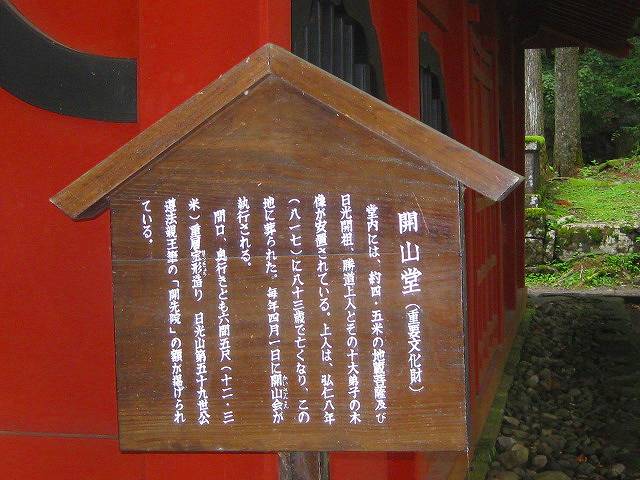 開山堂（重要文化財）
堂内には、約四・五米の地蔵菩薩及び
日光開祖、勝道上人とその十大弟子の木
像が安置されている。上人は、弘仁八年
（八一七）に八十三歳で亡くなり、この
地に葬られた。毎年四月一日に開山会が
かいさんえ
執行される。
間口、奥行きとも六間五尺（十二・三
米）重層宝形造り　日光山第五十九世公
遵法親王筆の「開先院」の額が掲げられ
ている。